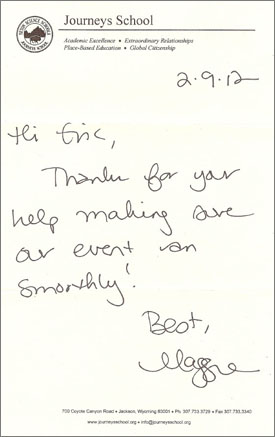 Journeys School
Academic Excellence • Extraordinary Relationships
Place-Based Education • Global Citizenship
2.9.12
Hi Eric,
Thanks for your
help making sure
our event ran
smoothly!
Best,
Maggie
700 Coyote Canyon Road • Jackson, Wyoming 83001 • Ph 307.733.3729 • Fax 307.733.3340
www.journeysschool.org • info@journeysschool.org